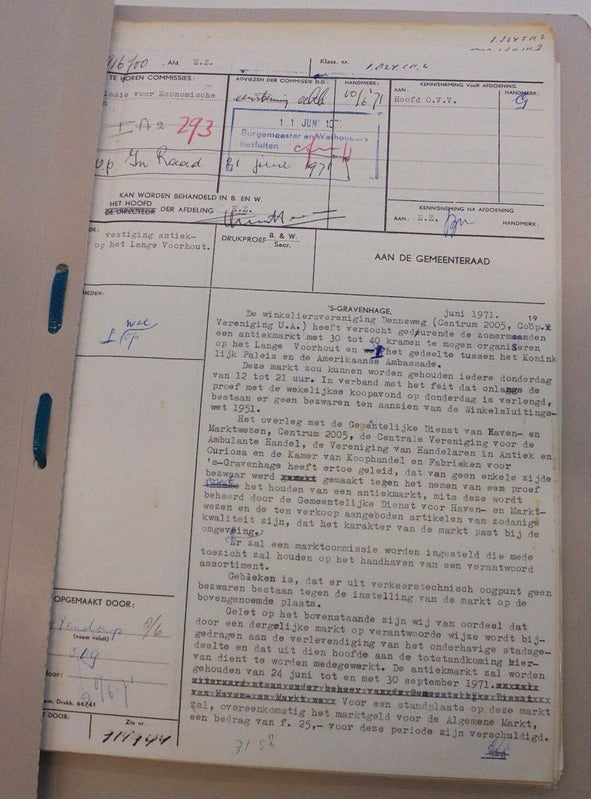 1.824.511.2
Afd. E.Z.
Klass. nr. 1.824.511.2
TE HOREN COMMISSIES:
ADVIEZEN DER COMMISSIE D.D.
HANDMERK:
KENNISNEMING VOOR AFDOENING
AAN:
HANDMERK:
voor Economische
Hoofd O.V.V.
293
11 JUNI 197
Burgemeester en Wethouders
besluiten
In Raad
juni 1971
KAN WORDEN BEHANDELD IN B. EN W.
HET HOOFD
DE DIRECTEUR DER AFDELING E.Z.
KENNISGEVING NA AFDOENING
AAN: E.Z.
HANDMERK:
vestiging antiek-
op het Lange Voorhout.
DRUKPROEF B. & W.
Secr.
AAN DE GEMEENTERAAD
'S-GRAVENHAGE, juni 1971. 19
De winkeliersvereniging Denneweg (Centrum 2005, Coöp.
Vereniging U.A.) heeft verzocht gedurende de zomermaanden
een antiekmarkt met 30 tot 40 kramen te mogen organiseren
op het Lange Voorhout en het gedeelte tussen het Konink
lijk Paleis en de Amerikaanse Ambassade.
Deze markt zou kunnen worden gehouden iedere donderdag
van 12 tot 21 uur. In verband met het feit dat onlangs de
proef met de wekelijkse koopavond op donderdag is verlengd,
bestaan er geen bezwaren ten aanzien van de Winkelsluitings-
wet 1951.
Het overleg met de Gemeentelijke Dienst van Haven- en
Marktwezen, Centrum 2005, de Centrale Vereniging voor de
Ambulante Handel, de Vereniging van Handelaren in Antiek en
Curiosa en de Kamer van Koophandel en Fabrieken voor
's-Gravenhage heeft ertoe geleid, dat van geen enkele zijde
bezwaar werd gemaakt tegen het nemen van een proef
het houden van een antiekmarkt, mits deze wordt
beheerd door de Gemeentelijke Dienst voor Haven- en Markt-
wezen en de ten verkoop aangeboden artikelen van zodanige
kwaliteit zijn, dat het karakter van de markt past bij de
omgeving.
Er zal een marktcommissie worden ingesteld die mede
toezicht zal houden op het handhaven van een verantwoord
assortiment.
Gebleken is, dat er uit verkeerstechnisch oogpunt geen
bezwaren bestaan tegen de instelling van de markt op de
bovengenoemde plaats.
Gelet op het bovenstaande zijn wij van oordeel dat
door een dergelijke markt op verantwoorde wijze wordt bij-
gedragen aan de verlevendiging van het onderhavige stadsge-
deelte en dat uit dien hoofde aan de totstandkoming hier-
van dient te worden medegewerkt. De antiekmarkt zal worden
gehouden van 24 juni tot en met 30 september 1971.
Voor een standplaats op deze markt
zal, overeenkomstig het marktgeld voor de Algemene Markt,
een bedrag van f. 25,- voor deze periode zijn verschuldigd.
OPGEMAAKT DOOR:
(naam voluit)
em. Drukk. 66741
DOOR:
Zte nr.